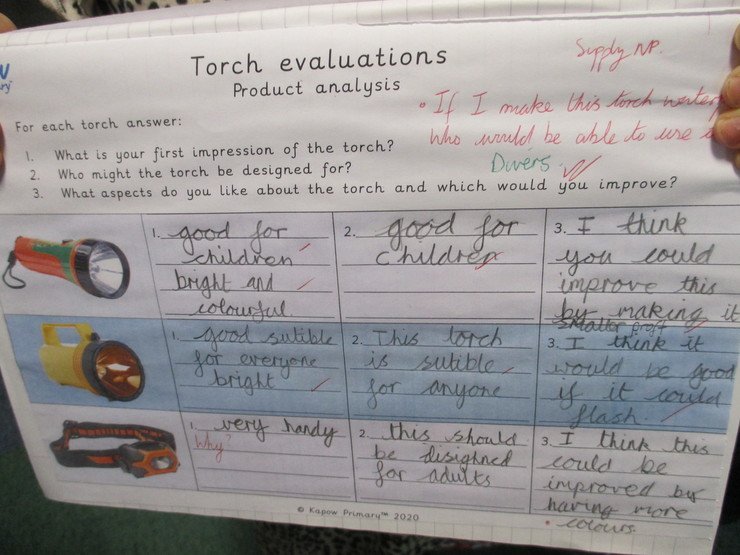 Torch evaluations
Product analysis
Supply NP.
• If I make this torch water
who would be able to use
Divers.
For each torch answer:
1. What is your first impression of the torch?
2. Who might the torch be designed for?
3. What aspects do you like about the torch and which would you improve?
1. good for
children
bright and
colourful
2. good for
children
3. I think
you could
improve this
by making it
1. good sutible
for everyone
bright
2. This torch
is sutible
for anyone
3. I think it
would be good
if it could
flash.
1. very handy
Why?
2. this should
be disighned
for adults
3. I think this
could be
improved by
having more
• colours
© Kapow Primary™ 2020